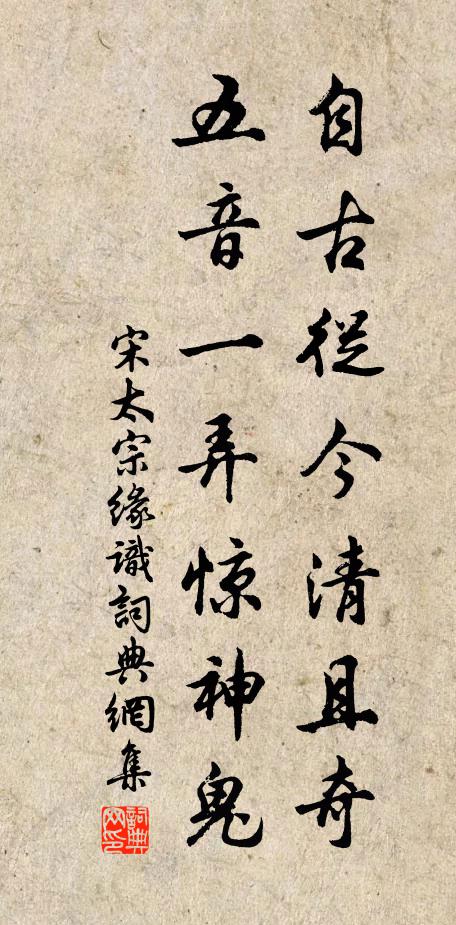 自古從今清且奇
五音一弄惊神鬼
宋太宗缘識詞典網集
詞典网印